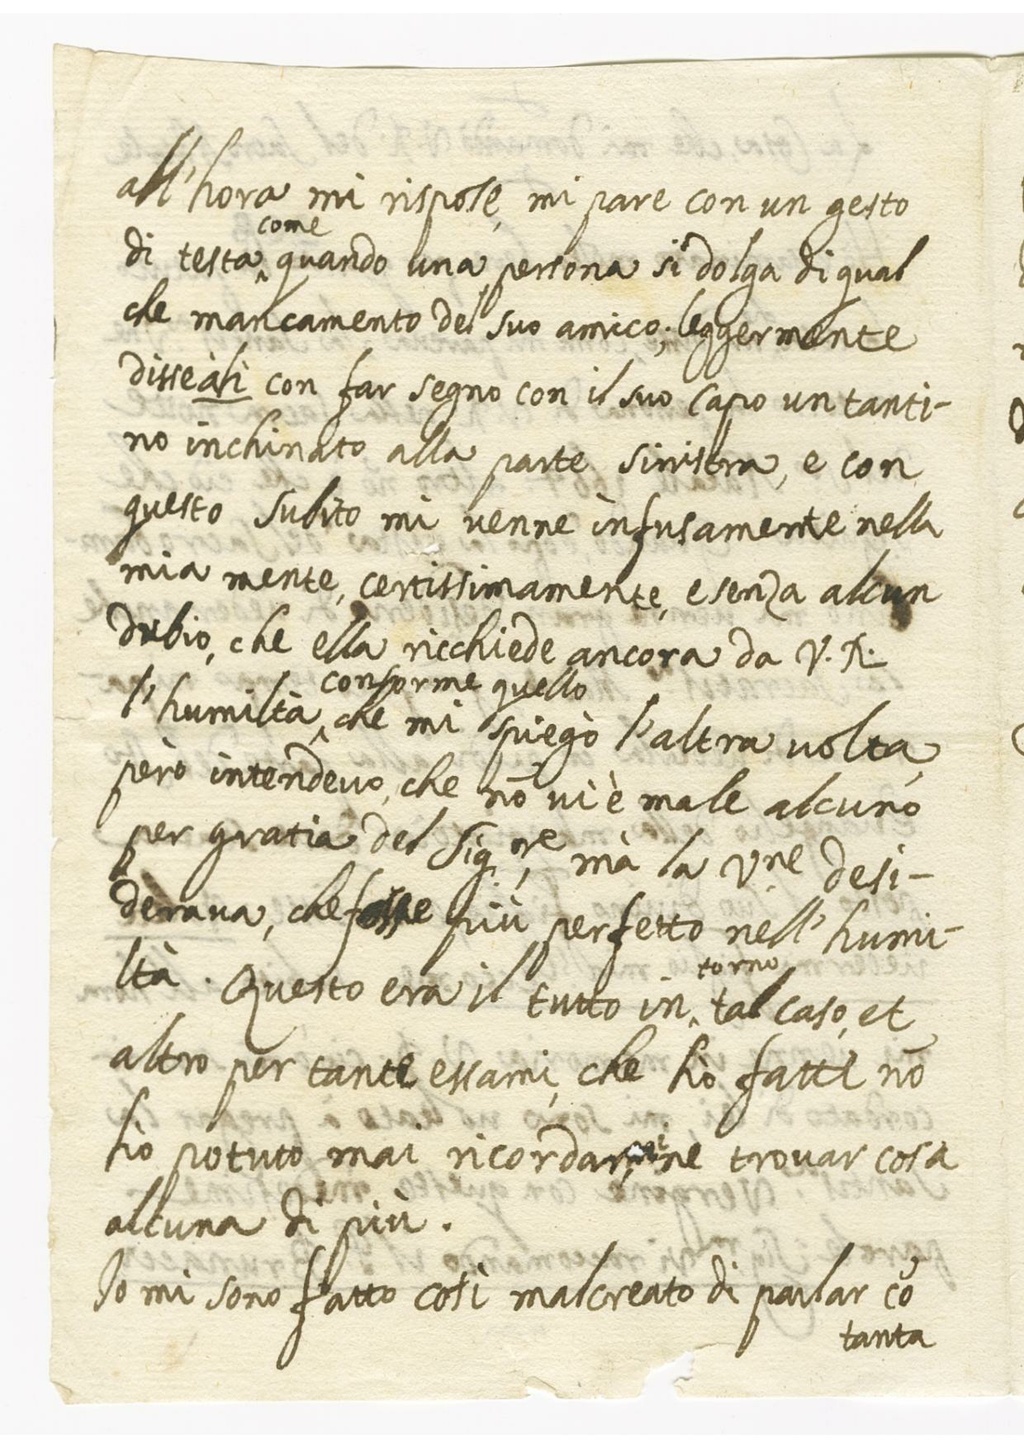 all'hora mi rispose, mi pare con un gesto
di testa, come quando una persona si dolga di qual
che mancamento del suo amico; leggermente
disse àh con far segno con il suo capo un tanti-
no inchinato alla parte sinistra, e con
questo subito mi venne infusamente nella
mia mente, certissimamente, e senza alcun
dubio, che ella ricchiede ancora da V. R.
l'humiltà, conforme quello che mi spiegò l'altra volta,
però intendevo, che nō vi è male alcuno
per gratia del Sig.re, mà la V.ne desi-
derava, che fosse più perfetto nell'humi-
ltà. Questo era il tutto in torno tal caso, et
altro per tante essami, che hò fatte nō
hò potuto mai ricordar ne trovar cosa
alcuna di più.
Io mi sono fatto così malcreato di parlar cō
tanta